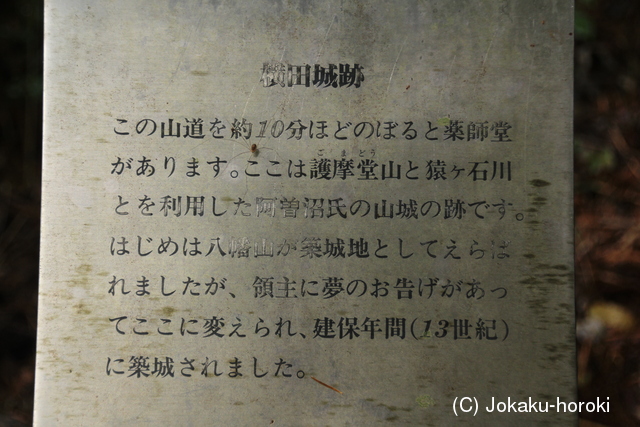 横田城跡
この山道を約10分ほどのぼると薬師堂
があります。ここは護摩堂山と猿ヶ石川
ごまどう
とを利用した阿曽沼氏の山城の跡です。
はじめは八幡山が築城地としてえらば
れましたが、領主に夢のお告げがあっ
てここに変えられ、建保年間(13世紀)
に築城されました。
(C) Jokaku-horoki